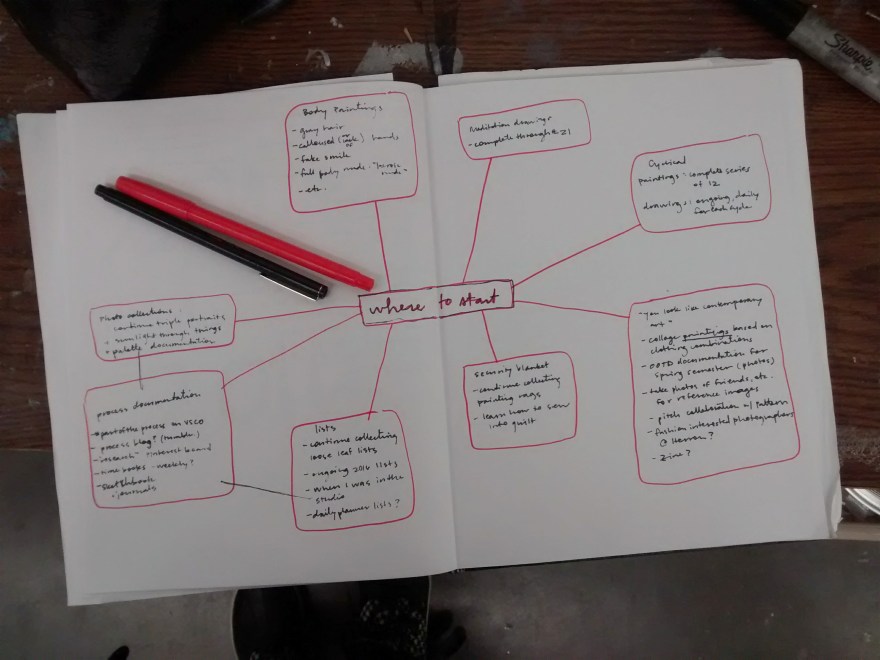 where to start
Body Paintings
- gray hair
- calloused (ink) hands
- fake smile
- full body nude - "heroic
nude"
- etc.
Meditation drawings
- complete through 21
Cyclical
paintings: complete series
of 12
drawings: ongoing, daily
for each cycle
Photo collections:
continue triple portraits
sunlight through things
palette documentation
process documentation
process on VSCO
- process blog? (tumblr)
- "research" Pinterest board
- books - weekly?
- sketchbook
journals
lists
- continue collecting
loose leaf lists
- ongoing 2016 lists
- when I was in the
studio
- daily planner lists?
security blanket
- continue collecting
painting rags
- learn how to sew
into quilt
- "you look like contemporary
art"
- collage paintings based on
clothing combinations
- OOTD documentation for
spring semester (photos)
- take photos of friends, etc.
for reference images
- pitch collaboration w/ Pattern
- fashion interested photographers
@ Herron?
- zine?
Sharpie